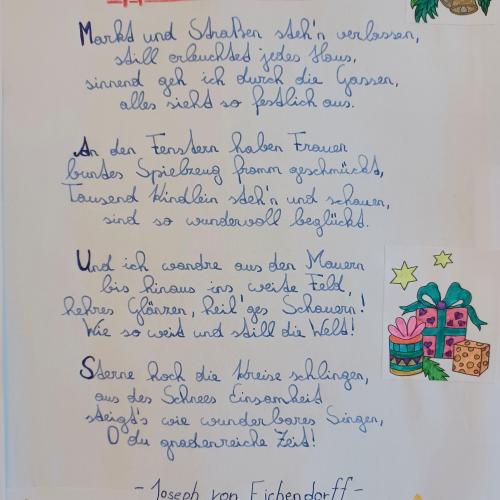 Markt und Straßen steh'n verlassen,
still erleuchtet jedes Haus,
sinnend geh ich durch die Gassen,
alles sieht so festlich aus.
An den Fenstern haben Frauen
buntes Spielzeug fromm geschmückt,
Tausend Kindlein steh'n und schauen,
sind so wundervoll beglückt.
Und ich wandre aus den Mauern
bis hinaus ins weite Feld,
hehres Glänzen, heil'ges Schauern!
Wie so weit und still die Welt!
Sterne hoch die Kreise schlingen,
aus des Schnees Einsamkeit
steigt's wie wunderbares Singen,
O du gnadenreiche Zeit!
- Joseph von Eichendorff -